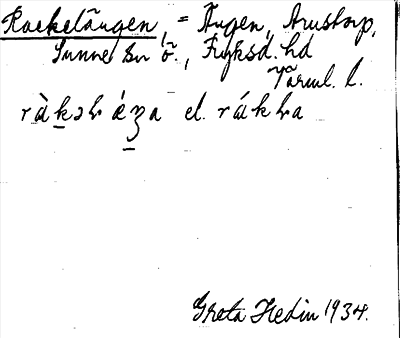 Rackelängen, = Ängen, Arnstorp,
Sunne sn ö., Fryksd. hd
Värml. l.
el.
Greta Hedin 1934.